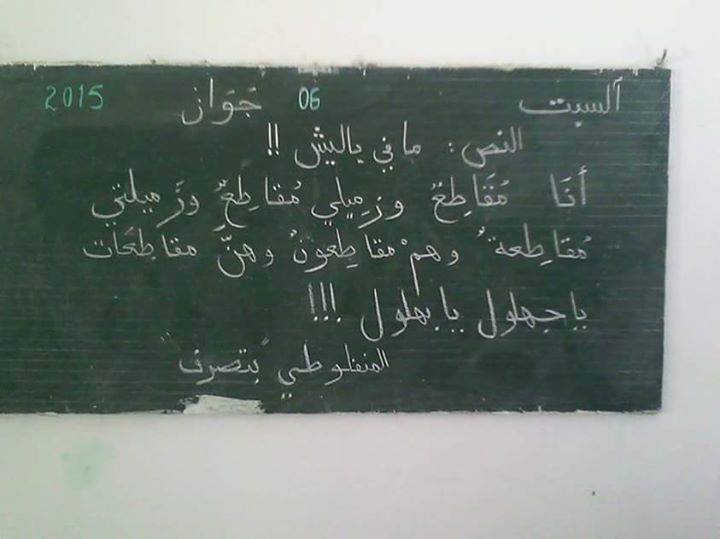 السبت 06 جَوَان 2015
النص: ما في باليش !!
أنَا مُقَاطِعٌ وزمِيلي مُقاطِعٌ وزَميلتي
مُقاطِعةٌ وهمْ مقاطِعونُ وهنّ مقاطعَات
ياجهلول يابهلول !!!
المنفلوطي "بتصرف"